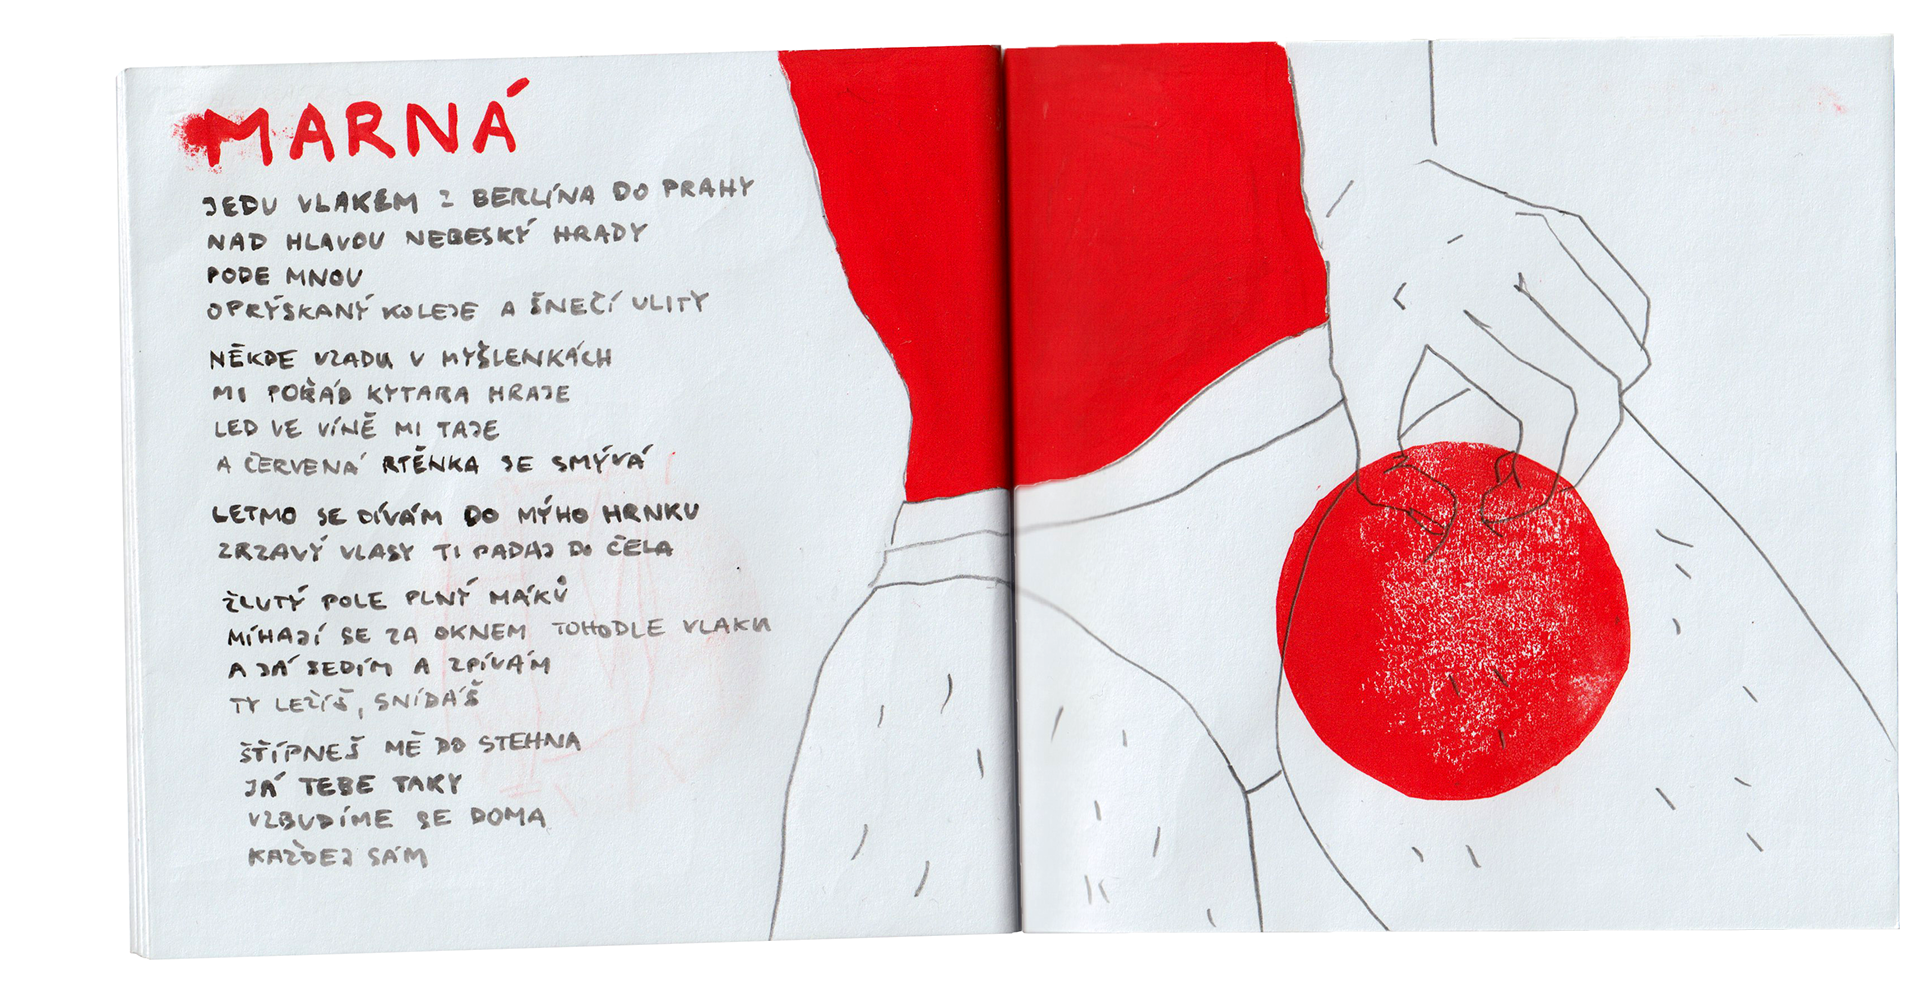 MARNÁ
JEDU VLAKEM Z BERLÍNA DO PRAHY
NAD HLAVOU NEBESKÝ HRADY
PODE MNOU
OPRÝSKANÝ KOLEJE A ŠNEČÍ ULITY
NĚKDE VZADU V MYŠLENKÁCH
MI POŘÁD KYTARA HRAJE
LED VE VÍNĚ MI TAJE
A ČERVENÁ RTĚNKA SE SMÝVÁ
LETMO SE DÍVÁM DO MÝHO HRNKU
ZRZAVÝ VLASY TI PADAJ DO ČELA
ŽLUTÝ POLE PLNÝ MÁKŮ
MÍHAJÍ SE ZA OKNEM TOHODLE VLAKU
A JÁ SEDÍM A ZPÍVÁM
TY LEŽÍŠ, SNÍDÁŠ
ŠTÍPNEŠ MĚ DO STEHNA
JÁ TEBE TAKY
VZBUDÍME SE DOMA
KAŽDEJ SÁM